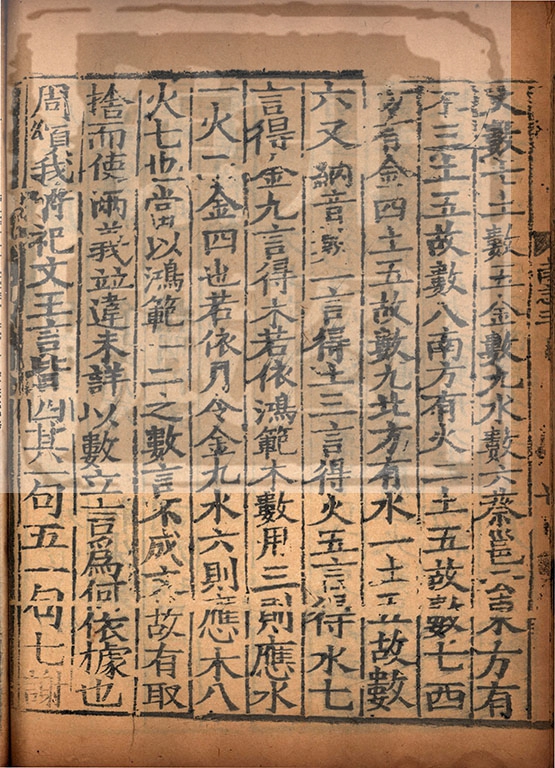 火數七土數五金數九水數六蔡邕云東方有
木三土五故數八南方有火二土五故數七西
方有金四土五故數九北方有水一土五故數
六又納音數一言得土三言得火五言得水七
言得金九言得木若依鴻範木數用三則應水
一火二金四也若依月令金九水六則應木八
火七也當以鴻範一二之數言不成文故有取
捨而使兩義並違未詳以數立言爲何依據也
周頌我將祀文王言皆四其一句五一句七謝